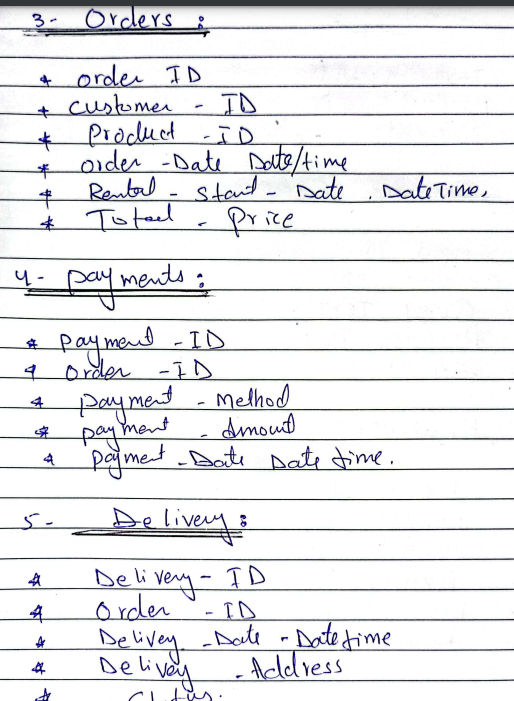 3- Orders :
* order ID
* customer - ID
* Product - ID
* order - Date Date/time
* Rental - Start - Date . DateTime,
* Total - Price
4- payments :
* payment - ID
* order - ID
* payment - Method
* payment - Amount
* payment - Date Date time.
5- Delivery :
* Delivery - ID
* Order - ID
* Delivey - Date - Date time
* Delivey - Address
* Status.